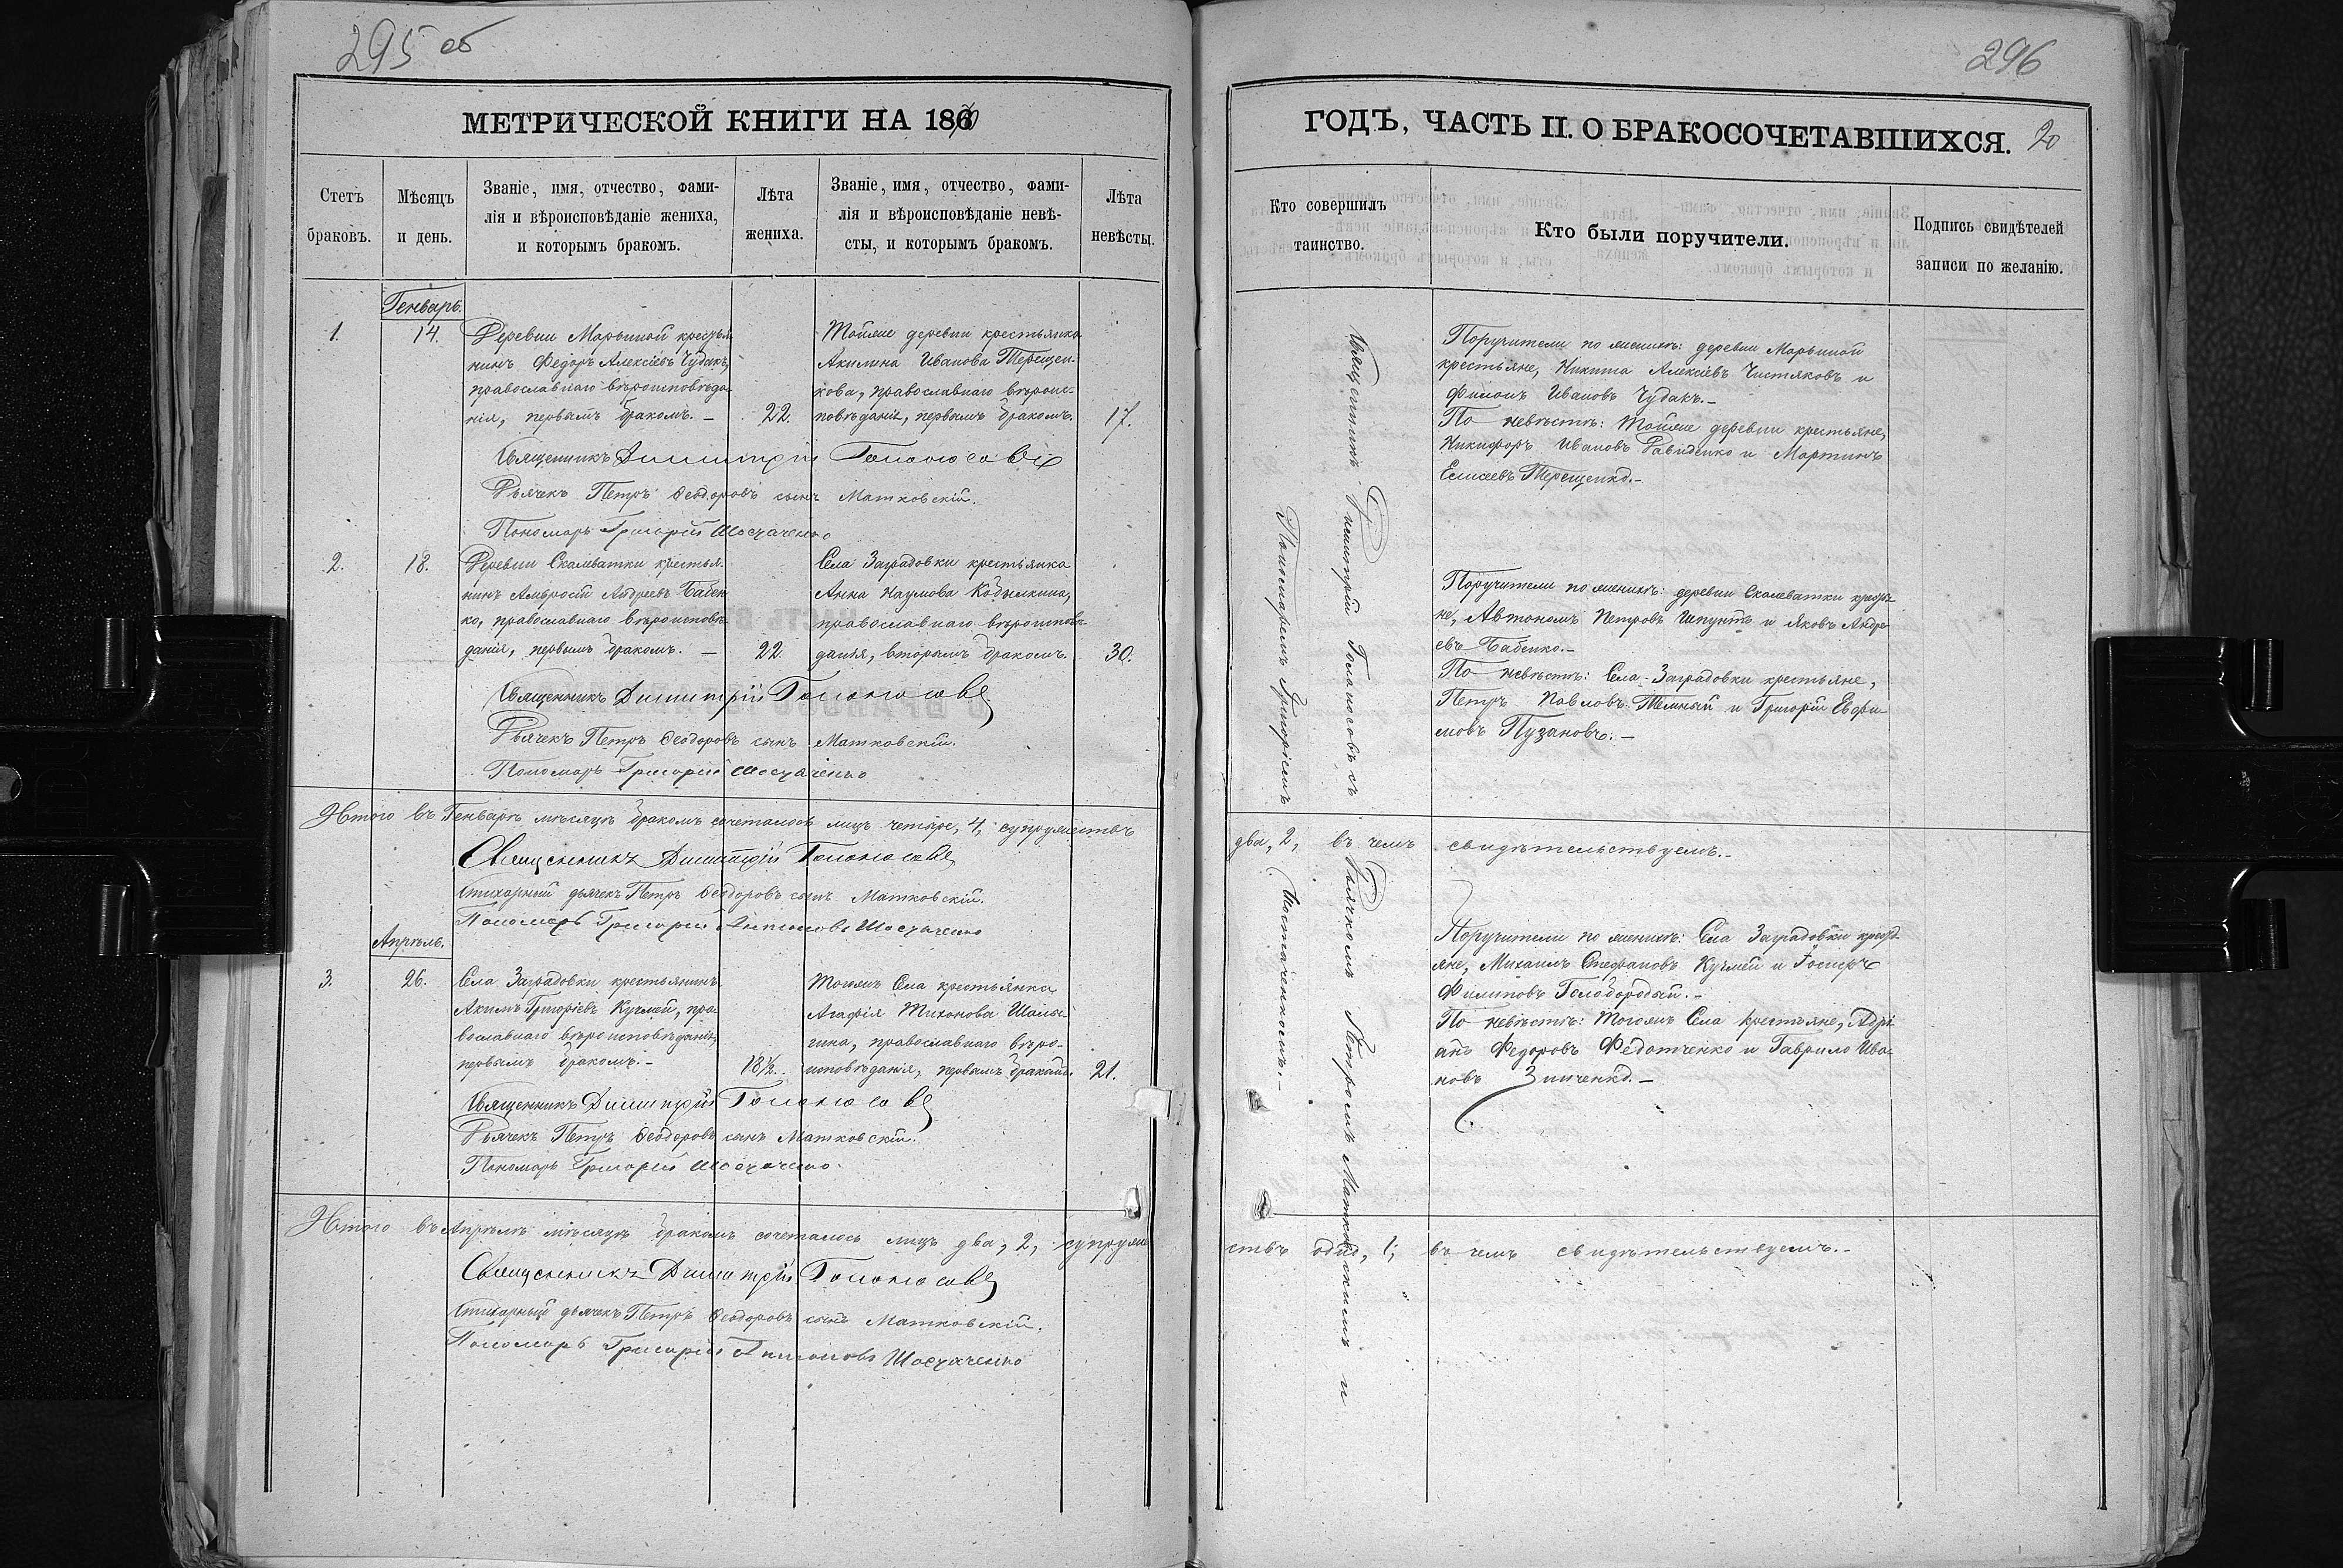 295 об
МЕТРИЧЕСКОЙ КНИГИ НА 1870
Счетъ
браковъ.
Мѣсяцъ
и день.
Званіе, имя, отчество, фами-
лія и вѣроисповѣданіе жениха,
и которымъ бракомъ.
Лѣта
жениха.
Званіе, имя, отчество, фами-
лія и вѣроисповѣданіе невѣ-
сты, и которымъ бракомъ.
Лѣта
невѣсты.
Генварь.
1.
14.
Деревни Марьиной крестья-
нинъ Федоръ Алексѣевъ Чудакъ,
православнаго вѣроисповѣда-
нія, первымъ бракомъ. –
22.
Тойже деревни крестьянка
Акилина Иванова Терещен-
кова, православнаго вѣроис-
повѣданія, первымъ бракомъ.
17.
Священникъ Димитрій
Дьячекъ Петръ Ѳеодоровъ сынъ Матковскій.
Пономарь Григорій
2.
18.
Деревни Скалеватки крестья-
нинъ Амвросій Андреевъ Бабен-
ко, православнаго вѣроисповѣ-
данія, первымъ бракомъ. –
22.
Села Заградовки крестьянка
Анна Наумова Кобылкина,
православнаго вѣроисповѣ-
данія, вторымъ бракомъ.
30.
Священникъ Димитрій
Дьячекъ Петръ Ѳеодоровъ сынъ Матковскій.
Пономарь Григорій
Итого въ Генварѣ мѣсяцѣ бракомъ сочеталось лицъ четыре, 4, супружествъ
Священникъ Димитрій
Стихарный дьячекъ Петръ Ѳеодоровъ сынъ Матковскій.
Пономарь Григорій Антоновъ
Апрѣль.
3.
26.
Села Заградовки крестьянинъ
Акимъ Григорьевъ Кучмей, пра-
вославнаго вѣроисповѣданія,
первымъ бракомъ. –
18½.
Тогожъ Села крестьянка
Агафія Тихонова
гина, православнаго вѣро-
исповѣданія, первымъ бракомъ.
21.
Священникъ Димитрій
Дьячекъ Петръ Ѳеодоровъ сынъ Матковскій.
Пономарь Григорій
Итого въ Апрѣлѣ мѣсяцѣ бракомъ сочеталось лицъ два, 2, супруже-
Священникъ Димитрій
Стихарный дьячекъ Петръ Ѳеодоровъ сынъ Матковскій.
Пономарь Григорій Антоновъ
296
ГОДЪ, ЧАСТЬ II. О БРАКОСОЧЕТАВШИХСЯ. 20
Кто совершилъ
таинство.
Кто были поручители.
Подпись свидѣтелей
записи по желанію.
Священникъ Димитрій съ
Дьячкомъ Петромъ Матковскимъ и
Пономаремъ Григоріемъ
Поручители по женихѣ: деревни Марьиной
крестьяне, Никита Алексѣевъ Чистяковъ и
Филипъ Ивановъ Чудакъ. –
По невѣстѣ: Тойже деревни крестьяне,
Никифоръ Ивановъ Давиденко и Мартинъ
Елисеевъ Терещенко. –
Поручители по женихѣ: деревни Скалеватки крестья-
не, Автономъ Петровъ Шпунтъ и Яковъ Андре-
евъ Бабенко. –
По невѣстѣ: Села Заградовки крестьяне,
Петръ Павловъ Темный и Григорій Евфи-
мовъ Пузановъ. –
два, 2, въ чемъ свидѣтельствуемъ. –
Поручители по женихѣ: Села Заградовки кресть-
яне, Михаилъ Стефановъ Кучмей и Іосифъ
Филиповъ Голобородый. –
По невѣстѣ: Тогожъ Села крестьяне, Адрі-
анъ Федоровъ Федотченко и Гаврило Ива-
новъ Зинченко. –
ствъ одно, 1, въ чемъ свидѣтельствуемъ. –